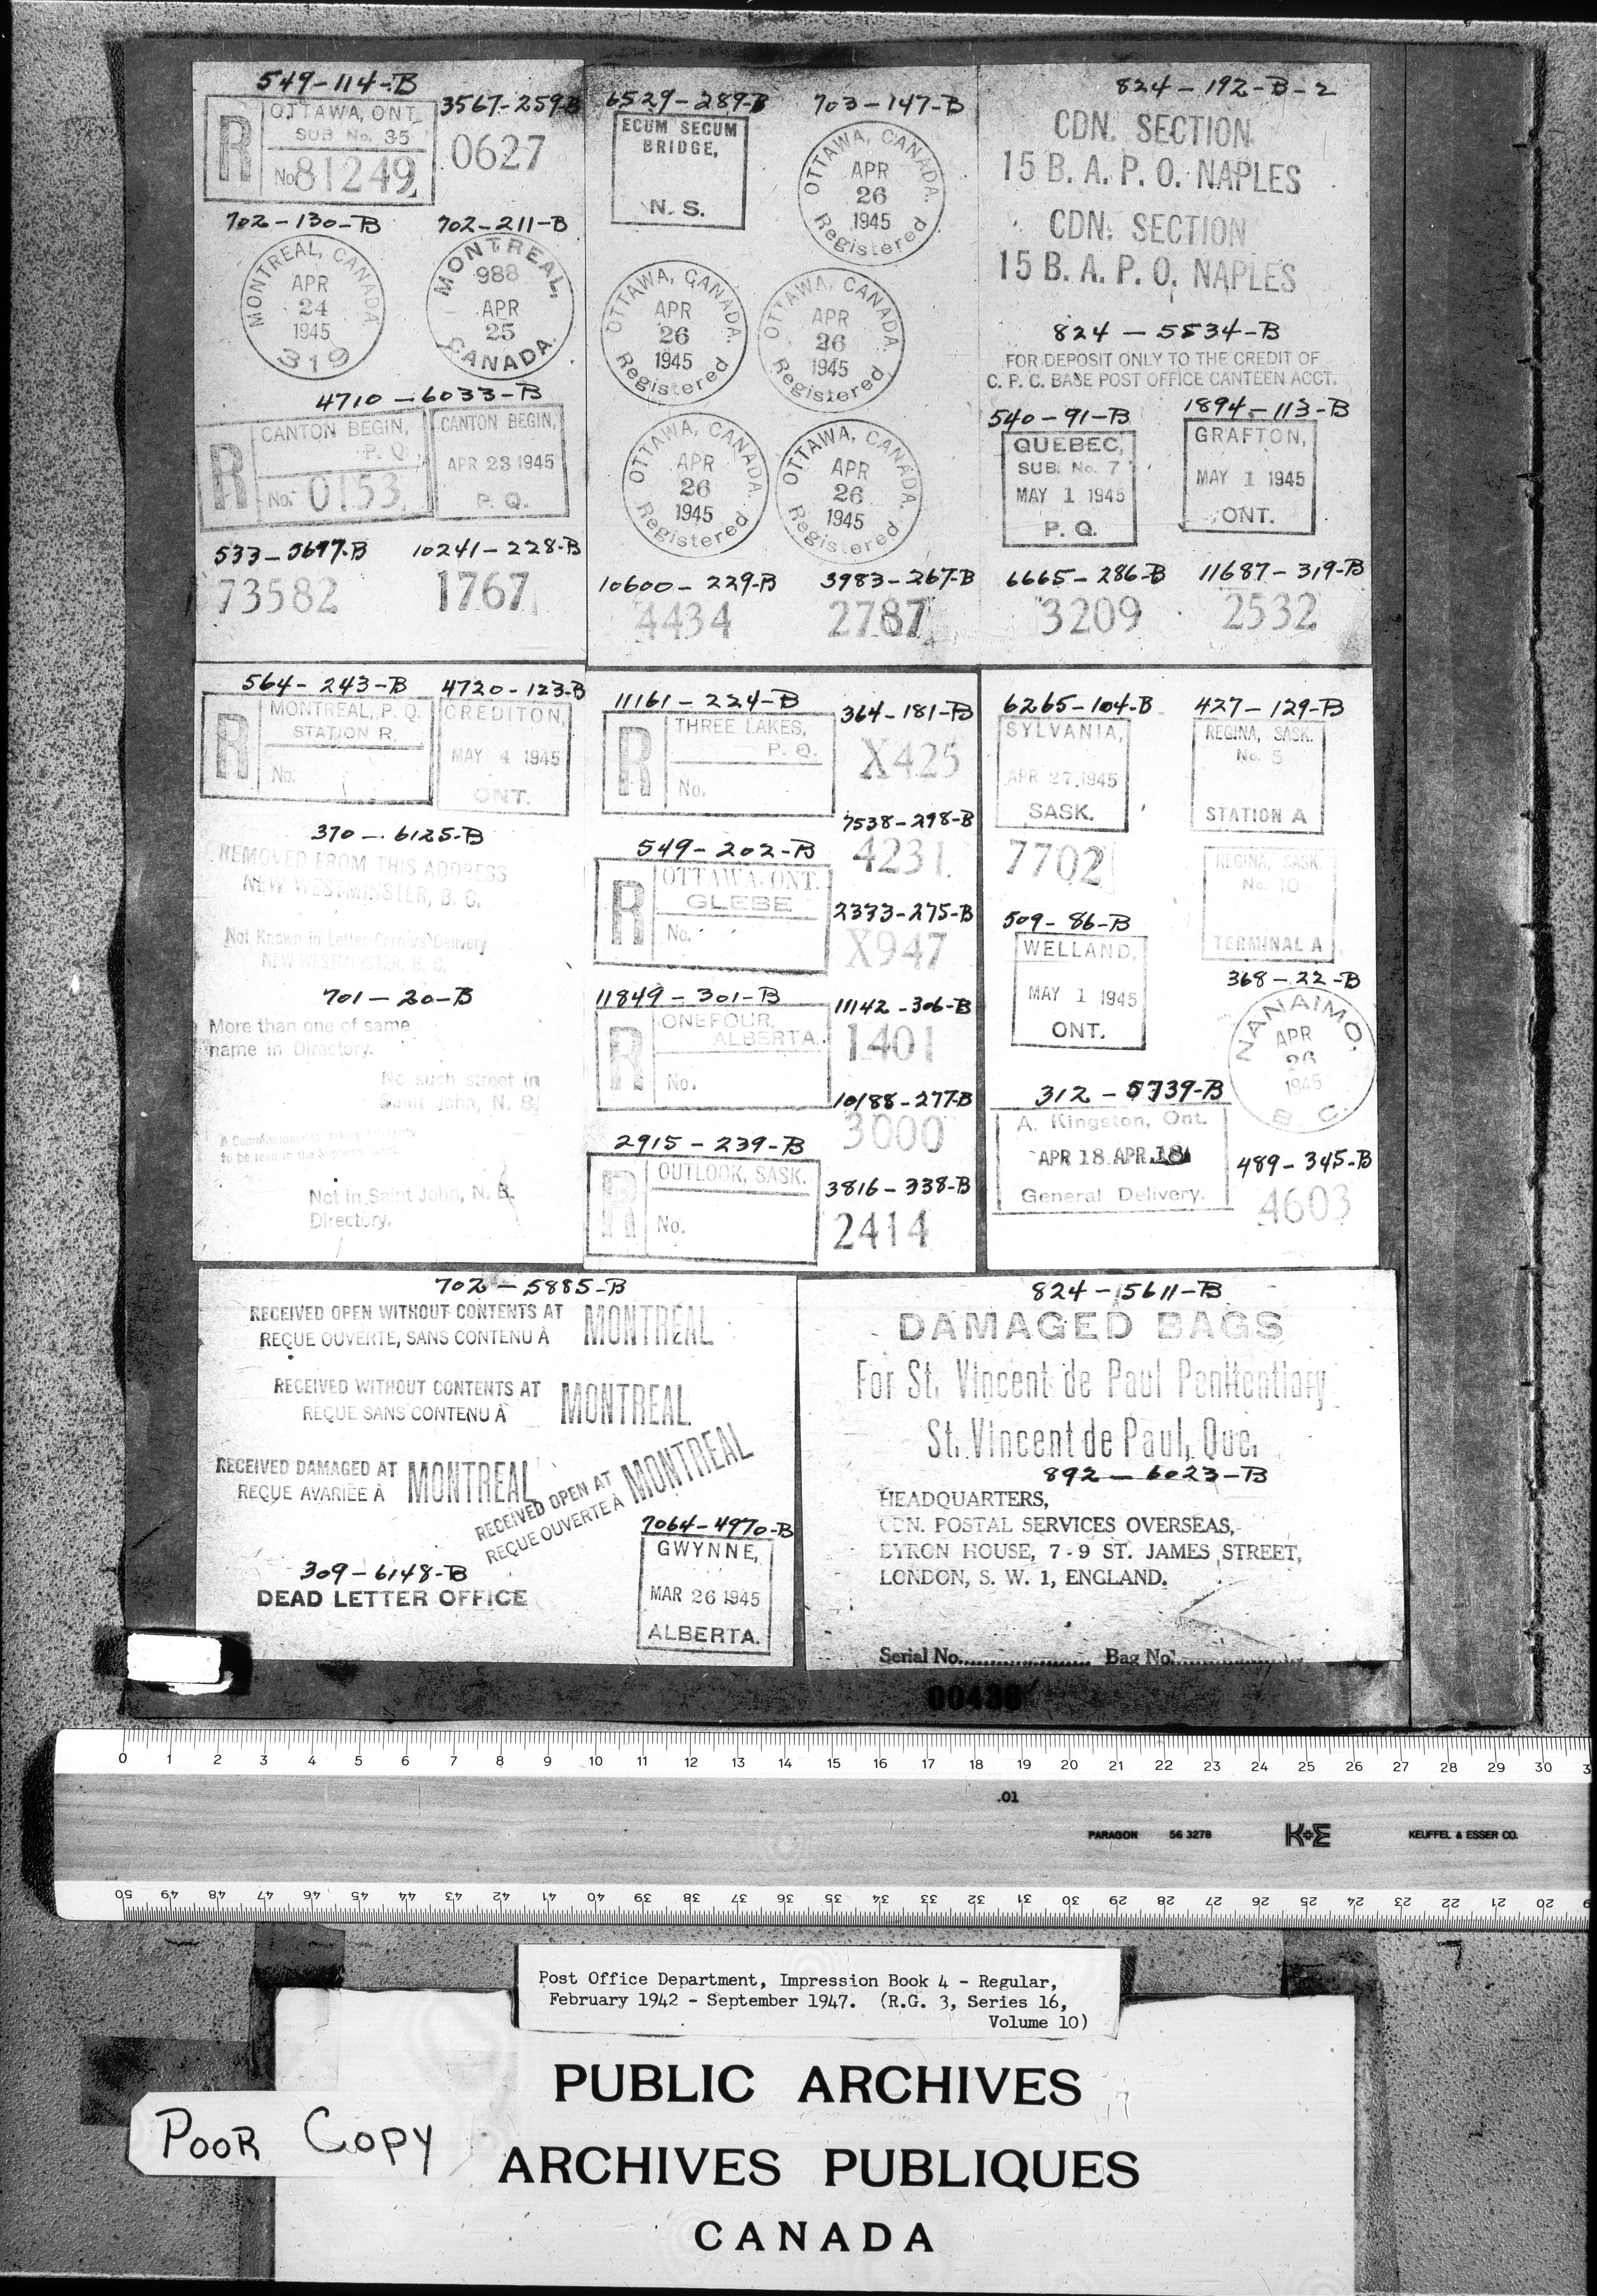 549-114-B
R OTTAWA, ONT.
SUB No. 35
No 81249
3567-259-B
0627
702-130-B
MONTREAL, CANADA
APR
24
1945
319
702-211-B
MONTREAL,
988
APR
25
CANADA.
4710-6033-B
R CANTON BEGIN,
P. Q.
No. 0153
CANTON BEGIN,
APR 23 1945
P. Q.
533-5697-B
73582
10241-228-B
1767
6529-289-B
ECUM SECUM
BRIDGE,
N. S.
703-147-B
OTTAWA, CANADA.
APR
26
1945
Registered
OTTAWA, CANADA.
APR
26
1945
Registered
OTTAWA, CANADA.
APR
26
1945
Registered
OTTAWA, CANADA.
APR
26
1945
Registered
OTTAWA, CANADA.
APR
26
1945
Registered
10600-229-B
4434
3983-267-B
2787
824-192-B-2
CDN. SECTION
15 B. A. P. O. NAPLES
CDN. SECTION
15 B. A. P. O. NAPLES
824-5534-B
FOR DEPOSIT ONLY TO THE CREDIT OF
C. P. C. BASE POST OFFICE CANTEEN ACCT.
540-91-B
QUEBEC,
SUB. No. 7
MAY 1 1945
P. Q.
1894-113-B
GRAFTON,
MAY 1 1945
ONT.
6665-286-B
3209
11687-319-B
2532
564-243-B
R MONTREAL, P. Q.
STATION R.
No.
4720-123-B
CREDITON,
MAY 4 1945
ONT.
370-6125-B
REMOVED FROM THIS ADDRESS
NEW WESTMINSTER, B. C.
Not Known in Letter Carriers' Delivery
NEW WESTMINSTER, B. C.
701-20-B
More than one of same
name in Directory.
No such street in
Saint John, N. B.
Not in Saint John, N. B.
Directory.
11161-224-B
R THREE LAKES,
P. Q.
No.
364-181-B
X425
7538-298-B
4231
549-202-B
R OTTAWA, ONT.
GLEBE
No.
2373-275-B
X947
11849-301-B
R ONEFOUR,
ALBERTA.
No.
11142-306-B
1401
10188-277-B
3000
2915-239-B
R OUTLOOK, SASK.
No.
3816-338-B
2414
6265-104-B
SYLVANIA,
APR 27 1945
SASK.
7702
427-129-B
REGINA, SASK.
No. 5
STATION A
REGINA, SASK.
No. 10
TERMINAL A
509-86-B
WELLAND,
MAY 1 1945
ONT.
368-22-B
NANAIMO,
APR
26
1945
B. C.
312-5739-B
A. Kingston, Ont.
APR 18 APR 18
General Delivery.
489-345-B
4603
702-5885-B
RECEIVED OPEN WITHOUT CONTENTS AT MONTREAL
REÇUE OUVERTE, SANS CONTENU À
RECEIVED WITHOUT CONTENTS AT MONTREAL
REÇUE SANS CONTENU À
RECEIVED DAMAGED AT MONTREAL
REÇUE AVARIÉE À
RECEIVED OPEN AT MONTREAL
REÇUE OUVERTE À
309-6148-B
DEAD LETTER OFFICE
7064-4970-B
GWYNNE,
MAR 26 1945
ALBERTA.
824-5611-B
DAMAGED BAGS
For St. Vincent de Paul Penitentiary
St. Vincent de Paul, Que.
892-6023-B
HEADQUARTERS,
CDN. POSTAL SERVICES OVERSEAS,
BYRON HOUSE, 7-9 ST. JAMES STREET,
LONDON, S. W. 1, ENGLAND.
Serial No.................... Bag No....................
00436
0 1 2 3 4 5 6 7 8 9 10 11 12 13 14 15 16 17 18 19 20 21 22 23 24 25 26 27 28 29 30 3
.01
PARAGON 56 3278 K+E KEUFFEL & ESSER CO.
50 49 48 47 46 45 44 43 42 41 40 39 38 37 36 35 34 33 32 31 30 29 28 27 26 25 24 23 22 21 20
Post Office Department, Impression Book 4 - Regular,
February 1942 - September 1947. (R.G. 3, Series 16,
Volume 10)
PUBLIC ARCHIVES
ARCHIVES PUBLIQUES
CANADA
POOR COPY